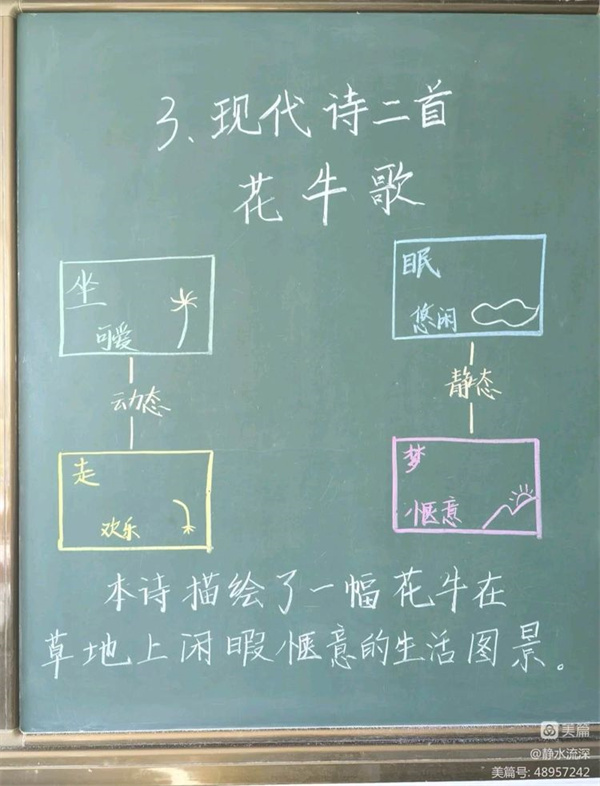 3、现代诗二首
花牛歌
坐
可爱
动态
走
欢乐
眠
悠闲
静态
梦
惬意
本诗描绘了一幅花牛在
草地上闲暇惬意的生活图景。
美篇
@静水流深
美篇号: 48957242